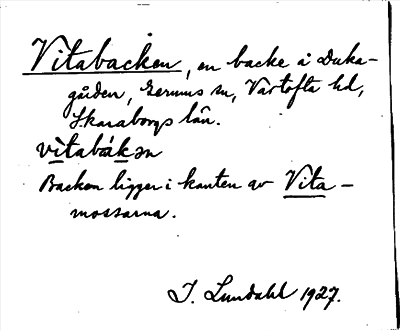 Vitabacken, en backe å Duka-
gården, Gerums sn, Vartofta hd,
Skaraborgs län.
vìtabák̀ən
Backen ligger i kanten av Vita-
mossarna.
I. Lundahl 1927.